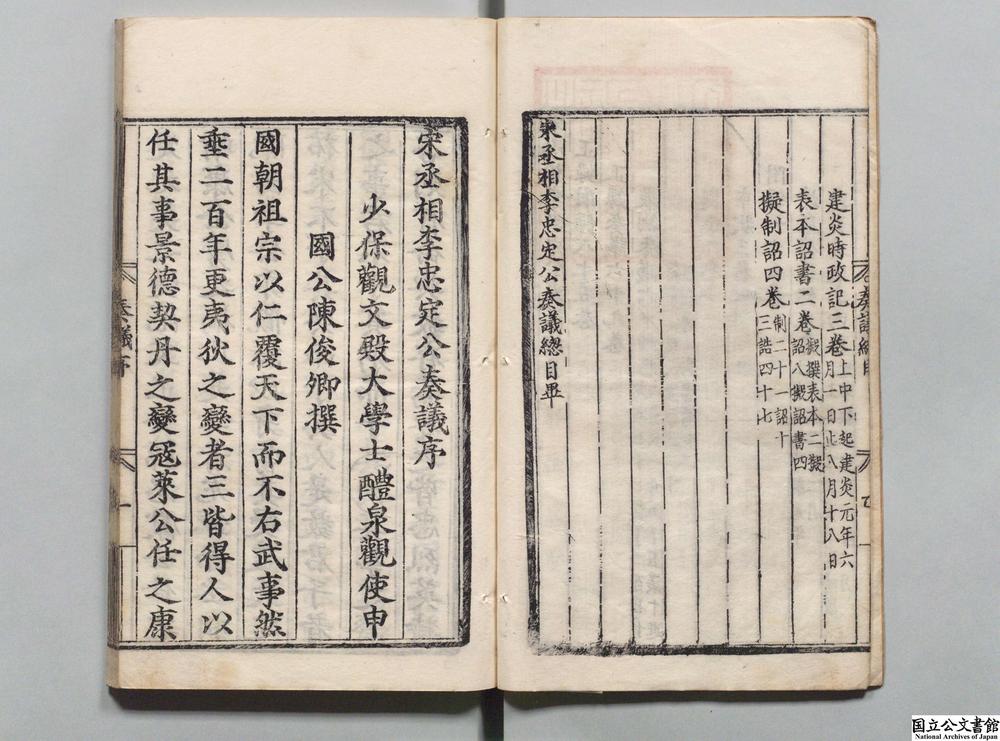 建炎時政記三卷上中下起建炎元年六
月一日止八月十八日
表本詔書二卷擬撰表本二擬
詔八擬詔書四
擬制詔四卷制二十一詔十
三誥四十七
宋丞相李忠定公奏議總目畢
奏議總目
宋丞相李忠定公奏議序
少保觀文殿大學士醴泉觀使申
國公陳俊卿撰
國朝祖宗以仁覆天下而不右武事然
垂二百年更夷狄之變者三皆得人以
任其事景德契丹之變冦萊公任之康
奏議序
一
国立公文書館
National Archives of Japan